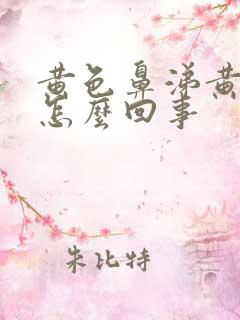 黄色鼻涕黄
怎麼回事
朱比特